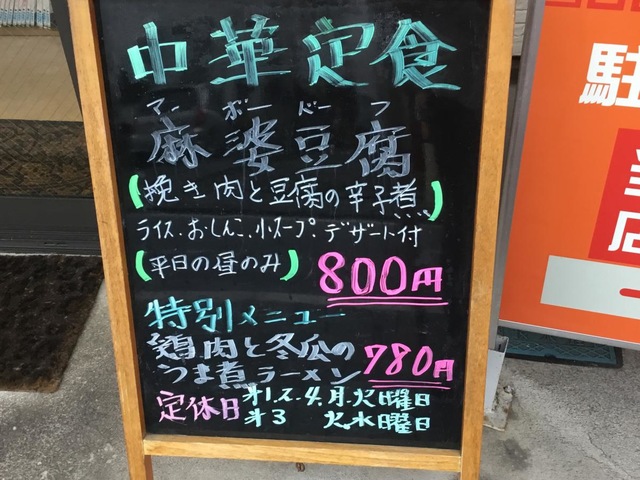 中華定食
マーボードーフ
麻婆豆腐
(挽き肉と豆腐の辛子煮)
ライス、おしんこ、小スープ、デザート付
(平日の昼のみ) 800円
特別メニュー
鶏肉と冬瓜の
うま煮ラーメン 780円
定休日 オ1.2.4.月.火曜日
オ3 火.水曜日
駐
店